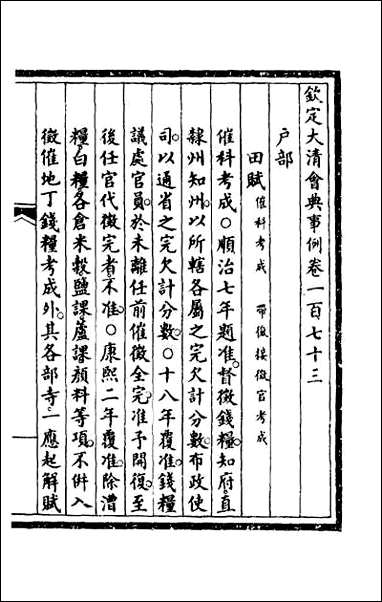 欽定大清會典事例卷一百七十三
戶部
田賦 催科考成 帶徵接徵官考成
催科考成○順治七年題准。督徵錢糧。知府直
隸州知州。以所轄各屬之完欠計分數。布政使
司。以通省之完欠計分數。○十八年覆准。錢糧
議處官員。於未離任前催徵全完。准予開復。至
後任官代徵完者。不准。○康熙二年覆准。除漕
糧。白糧。各倉米穀鹽課。蘆課顏料等項。不併入
徵催地丁錢糧考成外。其各部寺。一應起解賦